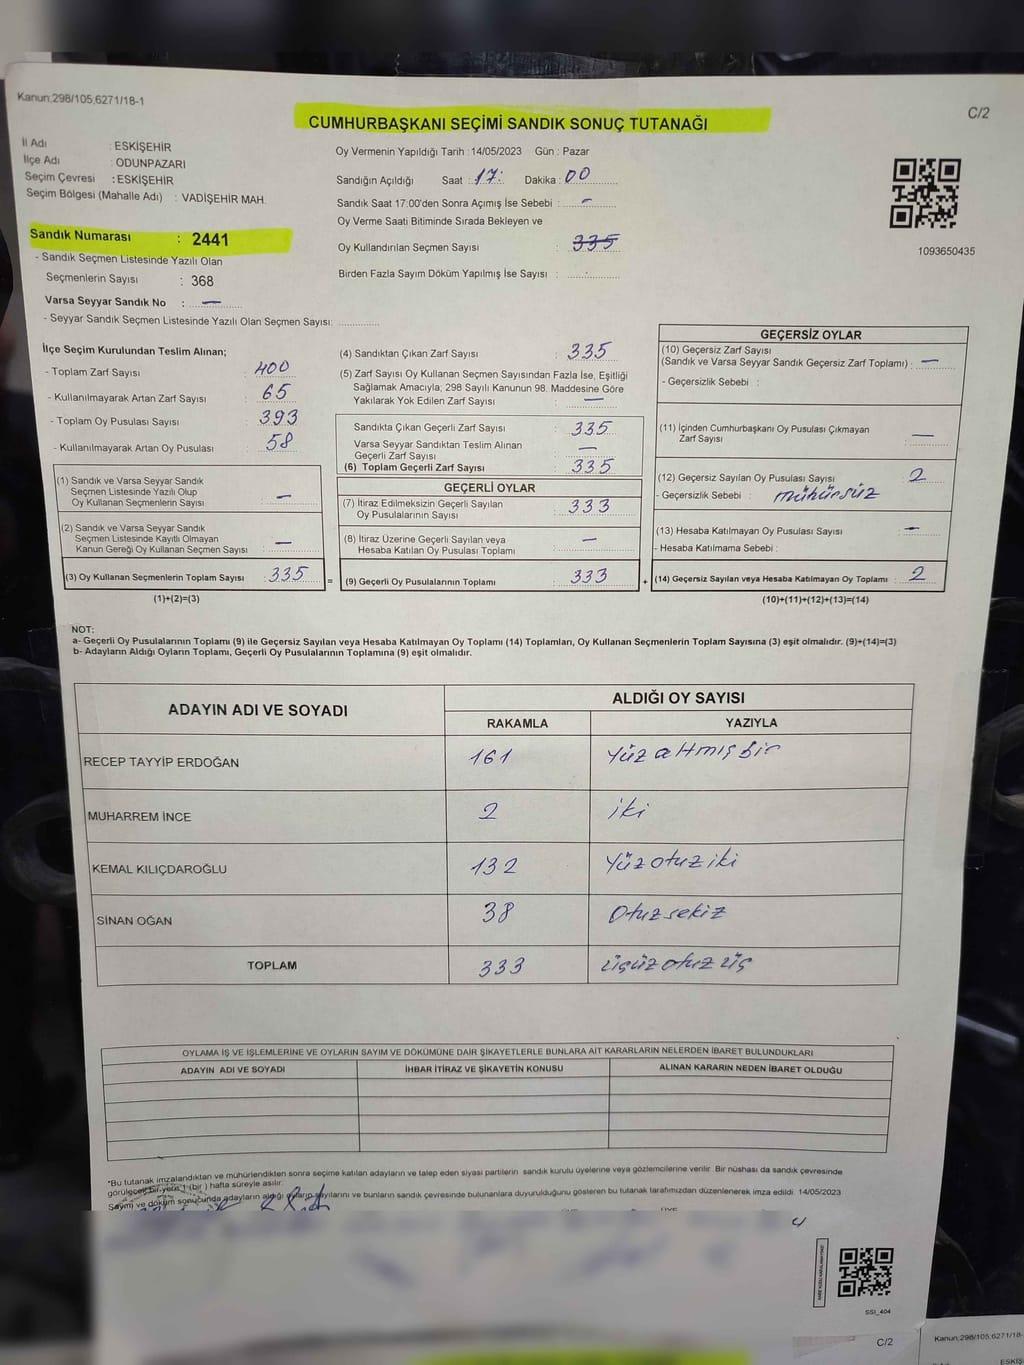 Kanun;298/105;6271/18-1
C/2
CUMHURBAŞKANI SEÇİMİ SANDIK SONUÇ TUTANAĞI
İl Adı : ESKİŞEHİR
İlçe Adı : ODUNPAZARI
Seçim Çevresi : ESKİŞEHİR
Seçim Bölgesi (Mahalle Adı) : VADİŞEHİR MAH.
Sandık Numarası : 2441
- Sandık Seçmen Listesinde Yazılı Olan
Seçmenlerin Sayısı : 368
Varsa Seyyar Sandık No : —
- Seyyar Sandık Seçmen Listesinde Yazılı Olan Seçmen Sayısı: ............
Oy Vermenin Yapıldığı Tarih : 14/05/2023 Gün : Pazar
Sandığın Açıldığı Saat : 17: Dakika : 00
Sandık Saat 17:00'den Sonra Açımış İse Sebebi : -
Oy Verme Saati Bitiminde Sırada Bekleyen ve
Oy Kullandırılan Seçmen Sayısı : 335
Birden Fazla Sayım Döküm Yapılmış İse Sayısı :
1093650435
İlçe Seçim Kurulundan Teslim Alınan;
- Toplam Zarf Sayısı : 400
- Kullanılmayarak Artan Zarf Sayısı : 65
- Toplam Oy Pusulası Sayısı : 393
- Kullanılmayarak Artan Oy Pusulası : 58
(1) Sandık ve Varsa Seyyar Sandık
Seçmen Listesinde Yazılı Olup
Oy Kullanan Seçmenlerin Sayısı : —
(2) Sandık ve Varsa Seyyar Sandık
Seçmen Listesinde Kayıtlı Olmayan
Kanun Gereği Oy Kullanan Seçmen Sayısı : —
(3) Oy Kullanan Seçmenlerin Toplam Sayısı : 335
(1)+(2)=(3)
=
(4) Sandıktan Çıkan Zarf Sayısı : 335
(5) Zarf Sayısı Oy Kullanan Seçmen Sayısından Fazla İse, Eşitliği
Sağlamak Amacıyla; 298 Sayılı Kanunun 98. Maddesine Göre
Yakılarak Yok Edilen Zarf Sayısı : —
Sandıkta Çıkan Geçerli Zarf Sayısı : 335
Varsa Seyyar Sandıktan Teslim Alınan
Geçerli Zarf Sayısı : —
(6) Toplam Geçerli Zarf Sayısı : 335
GEÇERLİ OYLAR
(7) İtiraz Edilmeksizin Geçerli Sayılan
Oy Pusulalarının Sayısı : 333
(8) İtiraz Üzerine Geçerli Sayılan veya
Hesaba Katılan Oy Pusulası Toplamı : —
(9) Geçerli Oy Pusulalarının Toplamı : 333
+
GEÇERSİZ OYLAR
(10) Geçersiz Zarf Sayısı
(Sandık ve Varsa Seyyar Sandık Geçersiz Zarf Toplamı) : —
- Geçersizlik Sebebi :
(11) İçinden Cumhurbaşkanı Oy Pusulası Çıkmayan
Zarf Sayısı : —
(12) Geçersiz Sayılan Oy Pusulası Sayısı : 2
- Geçersizlik Sebebi : mühürsüz
(13) Hesaba Katılmayan Oy Pusulası Sayısı : —
- Hesaba Katılmama Sebebi :
(14) Geçersiz Sayılan veya Hesaba Katılmayan Oy Toplamı : 2
(10)+(11)+(12)+(13)=(14)
NOT:
a- Geçerli Oy Pusulalarının Toplamı (9) ile Geçersiz Sayılan veya Hesaba Katılmayan Oy Toplamı (14) Toplamları, Oy Kullanan Seçmenlerin Toplam Sayısına (3) eşit olmalıdır. (9)+(14)=(3)
b- Adayların Aldığı Oyların Toplamı, Geçerli Oy Pusulalarının Toplamına (9) eşit olmalıdır.
ADAYIN ADI VE SOYADI
ALDIĞI OY SAYISI
RAKAMLA YAZIYLA
RECEP TAYYİP ERDOĞAN 161 Yüz altmış bir
MUHARREM İNCE 2 iki
KEMAL KILIÇDAROĞLU 132 Yüz otuz iki
SİNAN OĞAN 38 Otuz sekiz
TOPLAM 333 üçüz otuz üç
OYLAMA İŞ VE İŞLEMLERİNE VE OYLARIN SAYIM VE DÖKÜMÜNE DAİR ŞİKAYETLERLE BUNLARA AİT KARARLARIN NELERDEN İBARET BULUNDUKLARI
ADAYIN ADI VE SOYADI İHBAR İTİRAZ VE ŞİKAYETİN KONUSU ALINAN KARARIN NEDEN İBARET OLDUĞU
*Bu tutanak imzalandıktan ve mühürlendikten sonra seçime katılan adayların ve talep eden siyasi partilerin sandık kurulu üyelerine veya gözlemcilerine verilir. Bir nüshası da sandık çevresinde
görülecek bir yere 1 (bir) hafta süreyle asılır.
Sayım ve döküm sonucunda adayların aldığı oyların sayılarını ve bunların sandık çevresinde bulunanlara duyurulduğunu gösteren bu tutanak tarafımızdan düzenlenerek imza edildi. 14/05/2023
SSI_404
C/2
Kanun;298/105;6271/18-
ESKİŞ